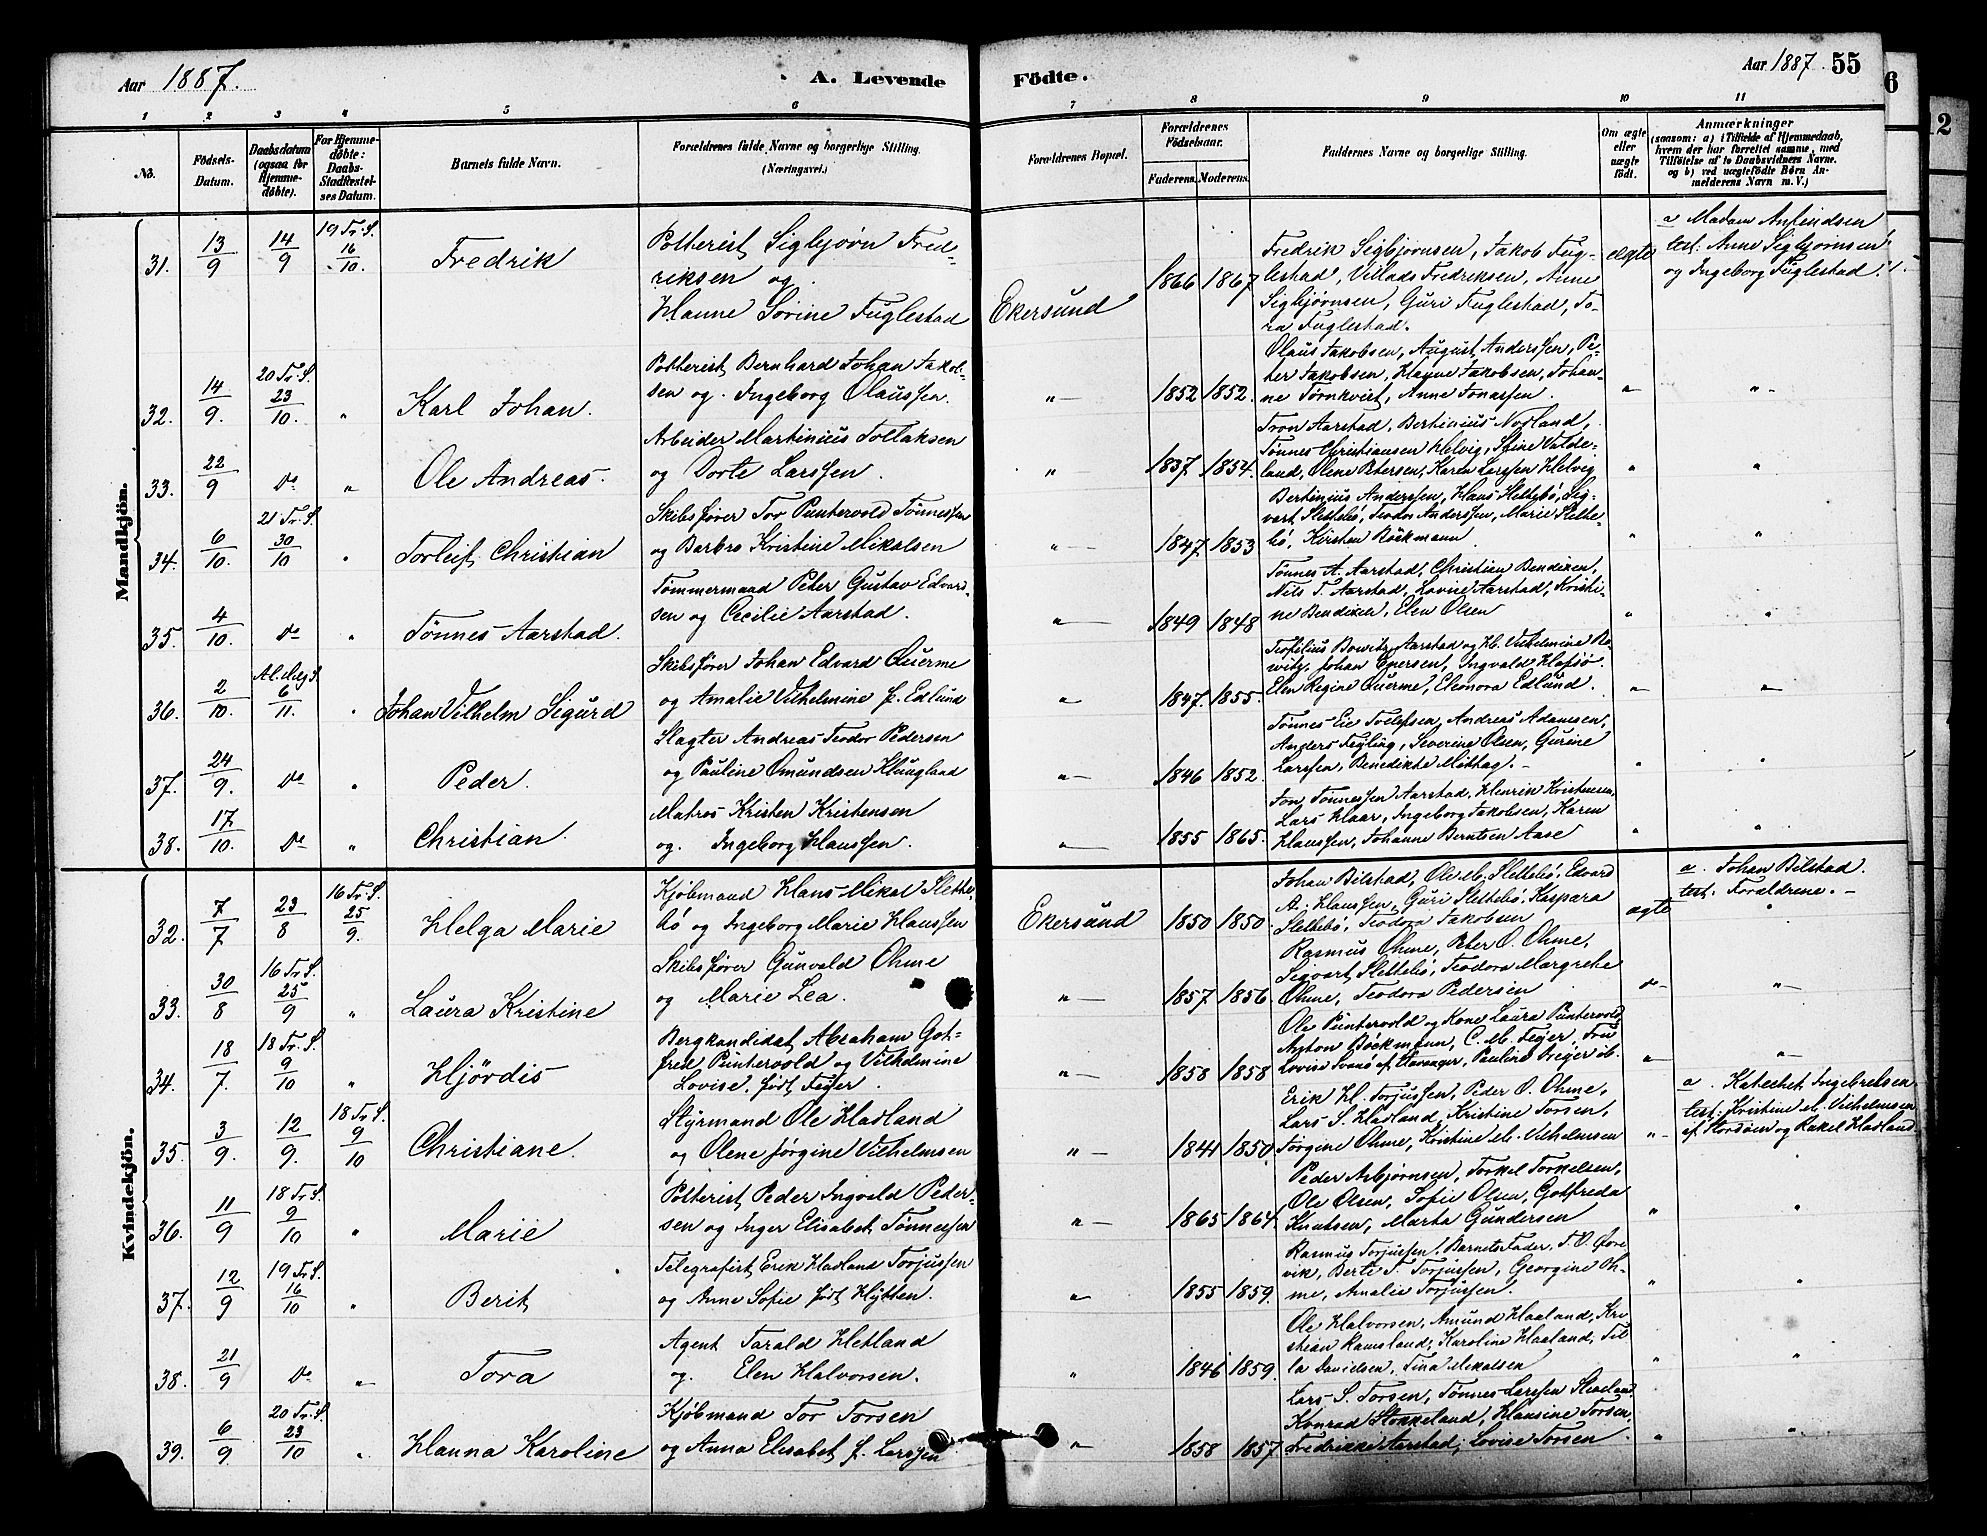 Aar 1887.
A. Levende Födte.
Aar 1887. 55
6
12
1 2 3 4 5 6 7 8 9 10 11
No.
Födsels-Datum.
Daabsdatum (ogsaa for Hjemme-döbte).
For Hjemme-döbte: Daabs-Stadfæstel-ses Datum.
Barnets fulde Navn.
Forældrenes fulde Navne og borgerlige Stilling. (Næringsvei.)
Forældrenes Bopæl.
Forældrenes Födselsaar.
Faderens. Moderens.
Faddernes Navne og borgerlige Stilling.
Om ægte eller uægte födt.
Anmærkninger
(saasom: a) i Tilfælde af Hjemmedaab, hvem der har forrettet samme, med Tilföielse af to Daabsvidners Navne. og b) ved uægtefödte Börn An-melderens Navn m. V.)
Mandkjön.
31. 13/9 14/9 19 Tr. S. 16/10. Fredrik
Potterist Sigbjørn Fred-
riksen og
Hanne Sorine Fuglestad
Ekersund 1866 1867
Fredrik Sigbjørnsen, Jakob Fug-
lestad, Villads Fredriksen, Anne
Sigbjørnsen, Guri Fuglestad, To-
ra Fuglestad.
ægte
a Madam Anfindsen
test: Anne Sigbjørnsen
og Ingeborg Fuglestad.
32. 14/9. 20 Tr. S. 23/10. " Karl Johan.
Potterist Bernhard Johan Jakob-
sen og Ingeborg Olaussen.
" 1852 1852.
Olaus Jakobsen, August Anderssen, Pe-
ter Jakobsen, Hanne Jakobsen, Johan-
ne Tørnkvist, Anne Jonassen.
" "
33. 22/9 do " Ole Andreas.
Arbeider Martinius Tollaksen
og Dorte Larssen.
" 1837 1854.
Tron Aarstad, Bertinius Nodland,
Tønnes Christiansen Helvig, Stine Valde-
land, Olene Petersen, Karen Larssen Helvig
" "
34. 6/10. 21 Tr. S. 30/10 " Torleif Christian
Skibsfører Tor Puntervold Tønnessen
og Barbro Kristine Mikalsen
" 1847 1853
Bertinius Anderssen, Hans Slettebø, Sig-
vart Slettebø, Teodor Anderssen, Marie Slette-
bø, Kirsten Böckmann
" "
35. 4/10. do " Tønnes Aarstad.
Tømmermand Peter Gustav Edvard-
sen og Cecilie Aarstad.
" 1849 1848
Tønnes A. Aarstad, Christian Bendixen,
Nils T. Aarstad, Lovise Aarstad, Kristi-
ne Bendixen, Elen Olsen
" "
36. 2/10. Al. Helg. S. 6/11. " Johan Vilhelm Sigurd
Skibsfører Johan Edvard Querme
og Amalie Vilhelmine f. Edlund
" 1847. 1855.
Teofilius Bowitz Aarstad og H. Vilhelmine Bo-
witz, Johan Evensen, Ingvald Hafsø
Elen Regine Querme, Eleonora Edlund.
" "
37. 24/9. do " Peder.
Slagter Andreas Teodor Pedersen
og Pauline Omundsen Klungland
" 1846 1852.
Tønnes Eie Tollefsen, Andreas Adamsen,
Anders Fegling, Severine Olsen, Gurine
Larssen, Benedikte Mittag.
" "
38. 17/10. do " Christian.
Matros Kristen Kristensen
og Ingeborg Hanssen.
" 1855 1865.
Jon Tønnessen Aarstad, Henrik Kristensen,
Lars Haar, Ingeborg Jakobsen, Karen
Hanssen, Johanne Berntsen Aase
" "
Kvindekjön.
32. 7/7 23/8 16 Tr. S. 25/9. Helga Marie
Kjøbmand Hans Mikal Slette-
bø og Ingeborg Marie Hanssen
Ekersund 1850 1850.
Johan Bilstad, Ole M. Slettebø, Edvard
A. Hanssen, Guri Slettebø, Kaspara
Slettebø, Teodora Jakobsen
ægte
a. Johan Bilstad.
test: Forældrene.
33. 30/8 16 Tr. S. 25/9 " Laura Kristine
Skibsfører Gunvald Ohme
og Marie Lea.
" 1857 1856.
Rasmus Ohme, Peter O. Ohme,
Sigvart Slettebø, Teodora Margrethe
Ohme, Teodora Pedersen
do "
34. 18/7. 18 Tr. S. 9/10 " Hjördis
Bergkandidat Abraham Got-
fred Puntervold og Vilhelmine
Lovise, født Feyer.
" 1858 1858
Ole Puntervold og Kone Laura Puntervold,
Anton Böckmann, C. M. Feyer, Fru
Lovise Svanø af Stavanger, Pauline Feyer
" "
35. 3/9. 12/9. 18 Tr. S. 9/10 Christiane.
Styrmand Ole Hadland
og Olene Jørgine Vilhelmsen
" 1841 1850.
Erik H. Torjussen, Peder O. Ohme,
Lars S. Hadland, Kristine Torsen,
Jørgine Ohme, Kristine M. Vilhelmsen
"
a. Katechet Ingebretsen.
test: Kristine M. Vilhelmsen
og Rakel Hadland
36. 11/9 18 Tr. S. 9/10 " Marie
Potterist Peder Ingvald Peder-
sen og Inger Elisabet Tønnessen
" 1865 1864.
Peder Asbjørnsen, Torkel Torkelsen,
Ole Olsen, Sofie Olsen, Gotfreda
Knutsen, Marta Gundersen
" "
37. 12/9 19 Tr. S. 16/10 " Berit
Telegrafist Erik Hadland Torjussen
og Anne Sofie født Hytten.
" 1855 1859.
Rasmus Torjussen, Barnets Fader, T. O. Øre-
vik, Berte T. Torjussen, Georgine Oh-
me, Amalie Torjussen.
" "
38. 21/9 do " Tora
Agent Tarald Hetland
og Elen Halvorsen.
" 1846 1859.
Ole Halvorsen, Amund Haaland, Kri-
stian Ramsland, Karoline Haaland, Til-
la Davidsen, Tina Mikalsen
" "
39. 6/9 20 Tr. S. 23/10 " Hanna Karoline
Kjøbmand Tor Torsen
og Anna Elisabet f. Larssen
" 1858 1857.
Lars S. Torsen, Tønnes Larssen
Konrad Stokkeland, Hansine Torsen,
Fredrikke Aarstad, Lovise Torsen.
" "